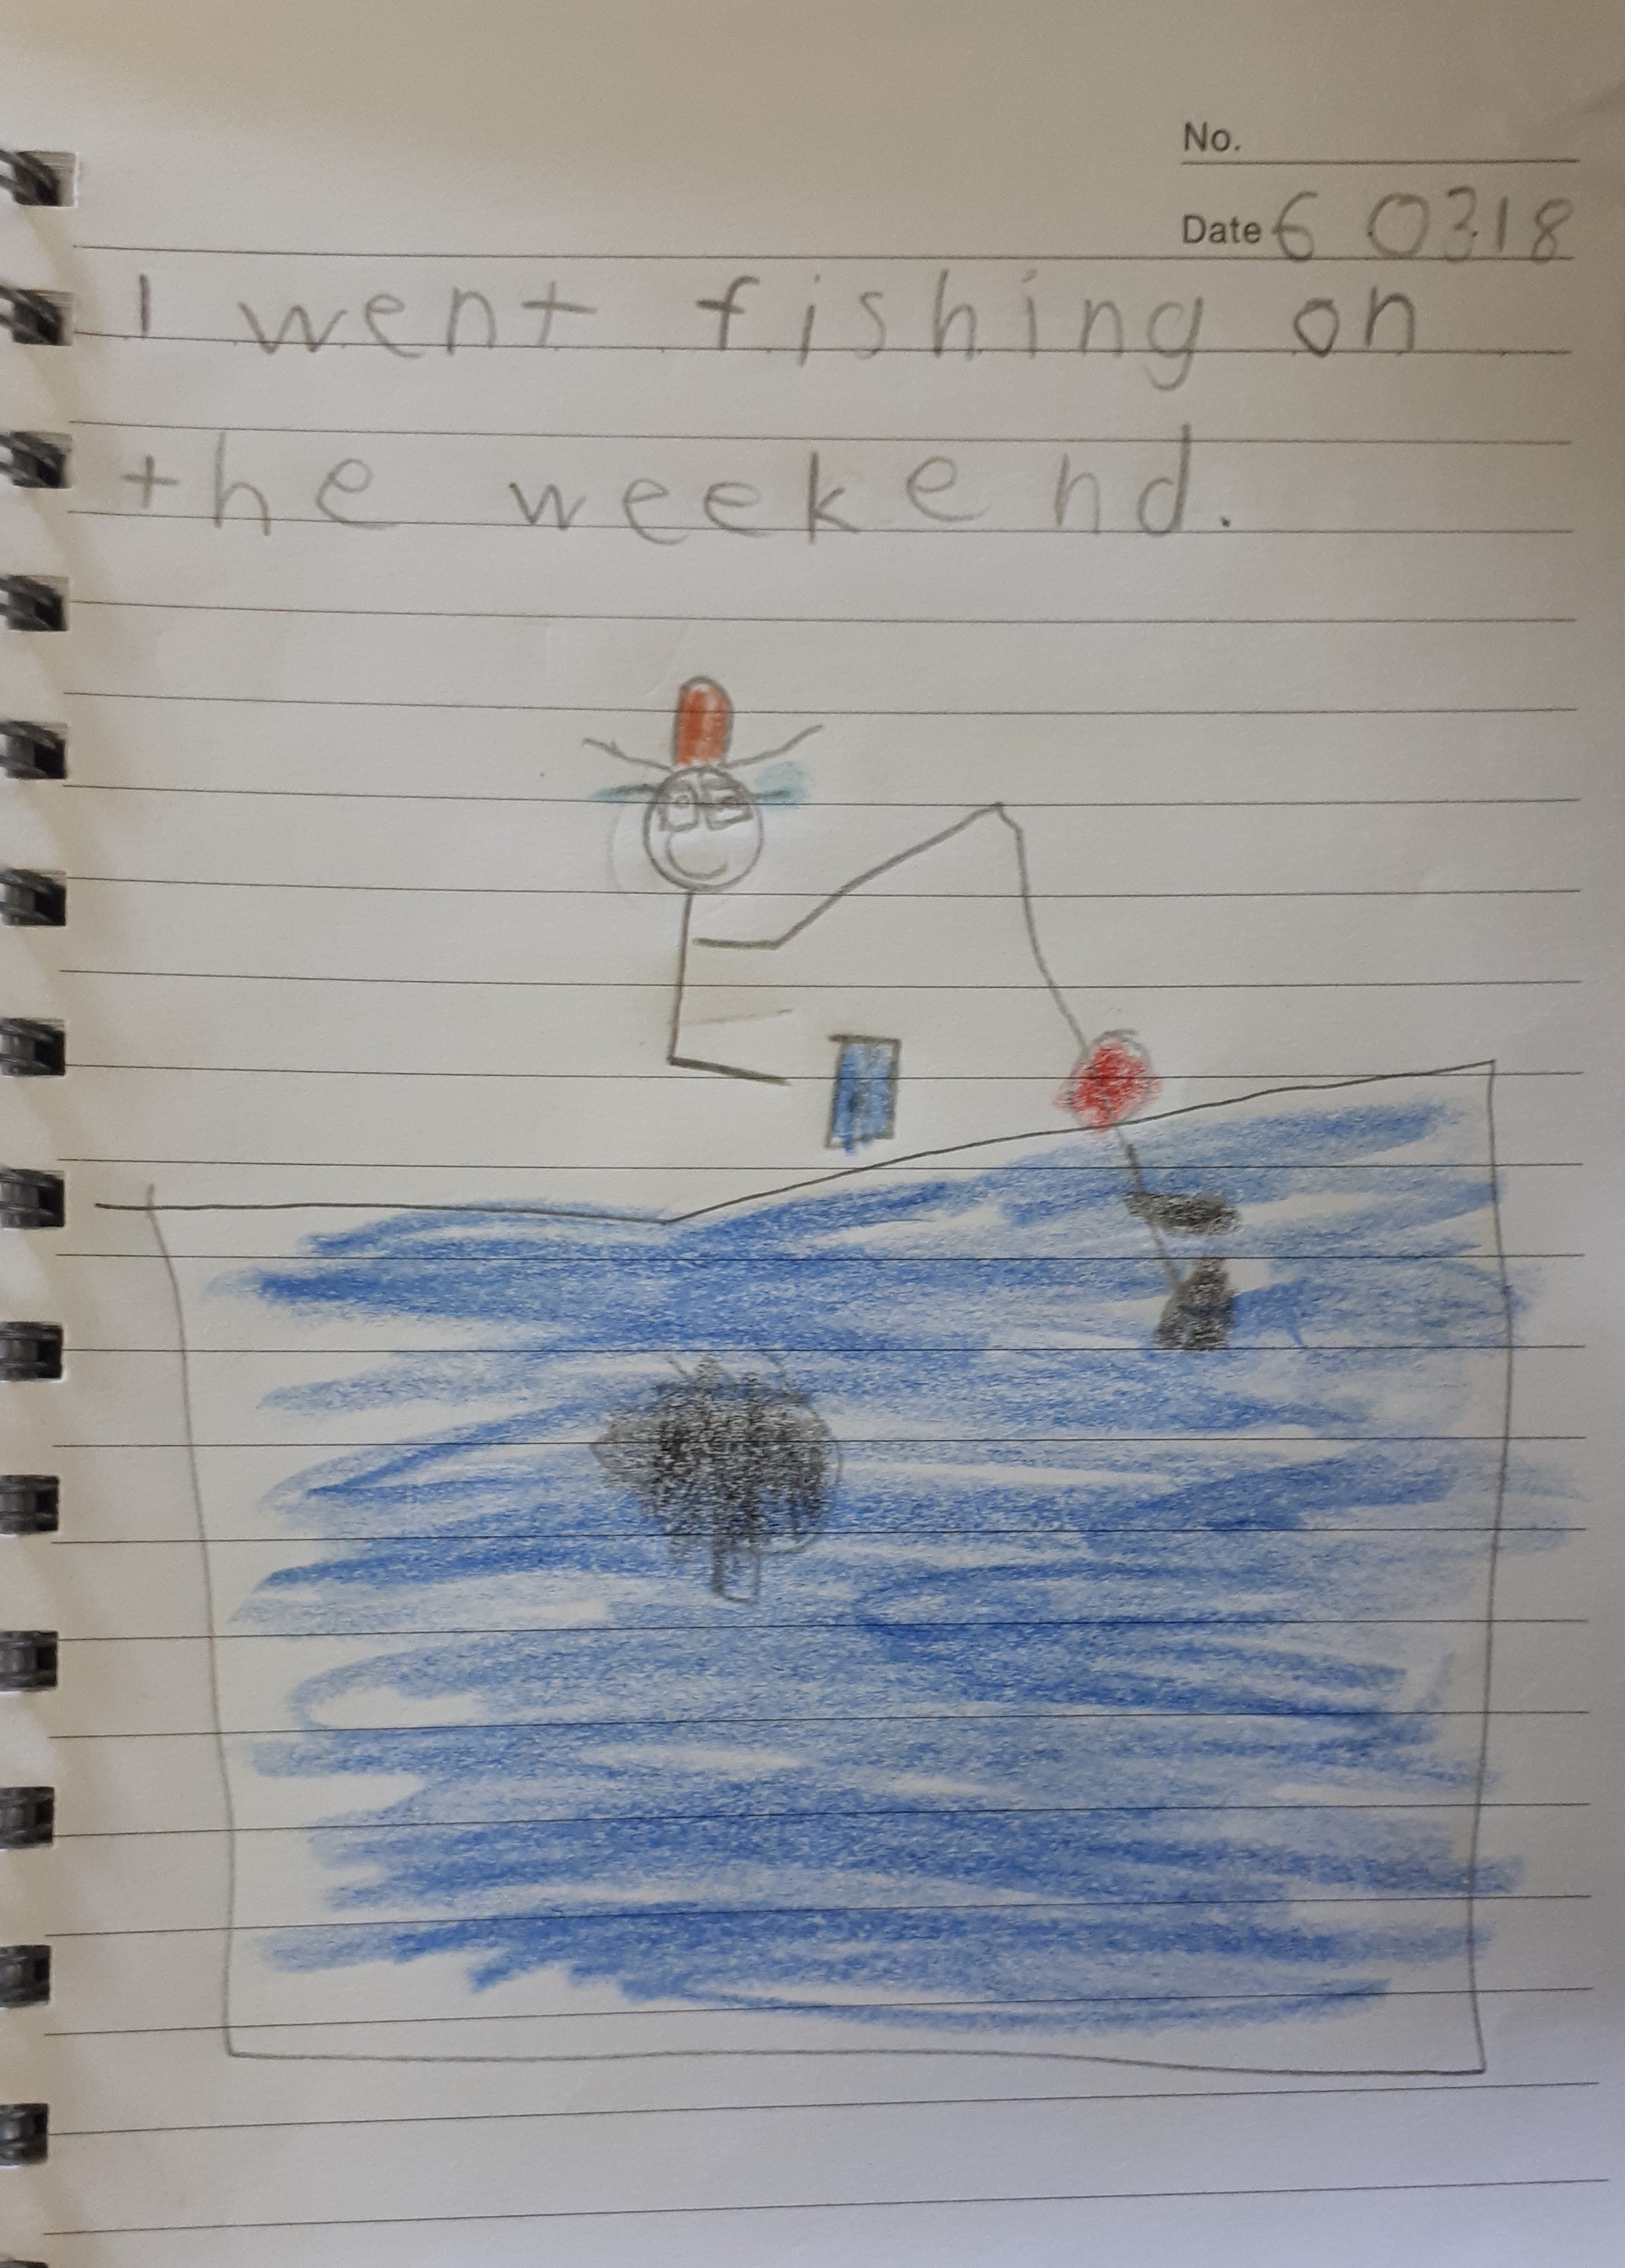 No.
Date 6 0318
I went fishing on
the weekend.